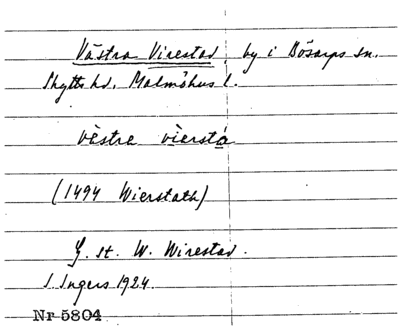 Västra Virestad, by i Bösarps sn.
Skytts hd, Malmöhus l.
vèstra vìersta
(1494 Wierstath)
G. st. W. Wirestad.
I. Ingers 1924.
Nr 5804